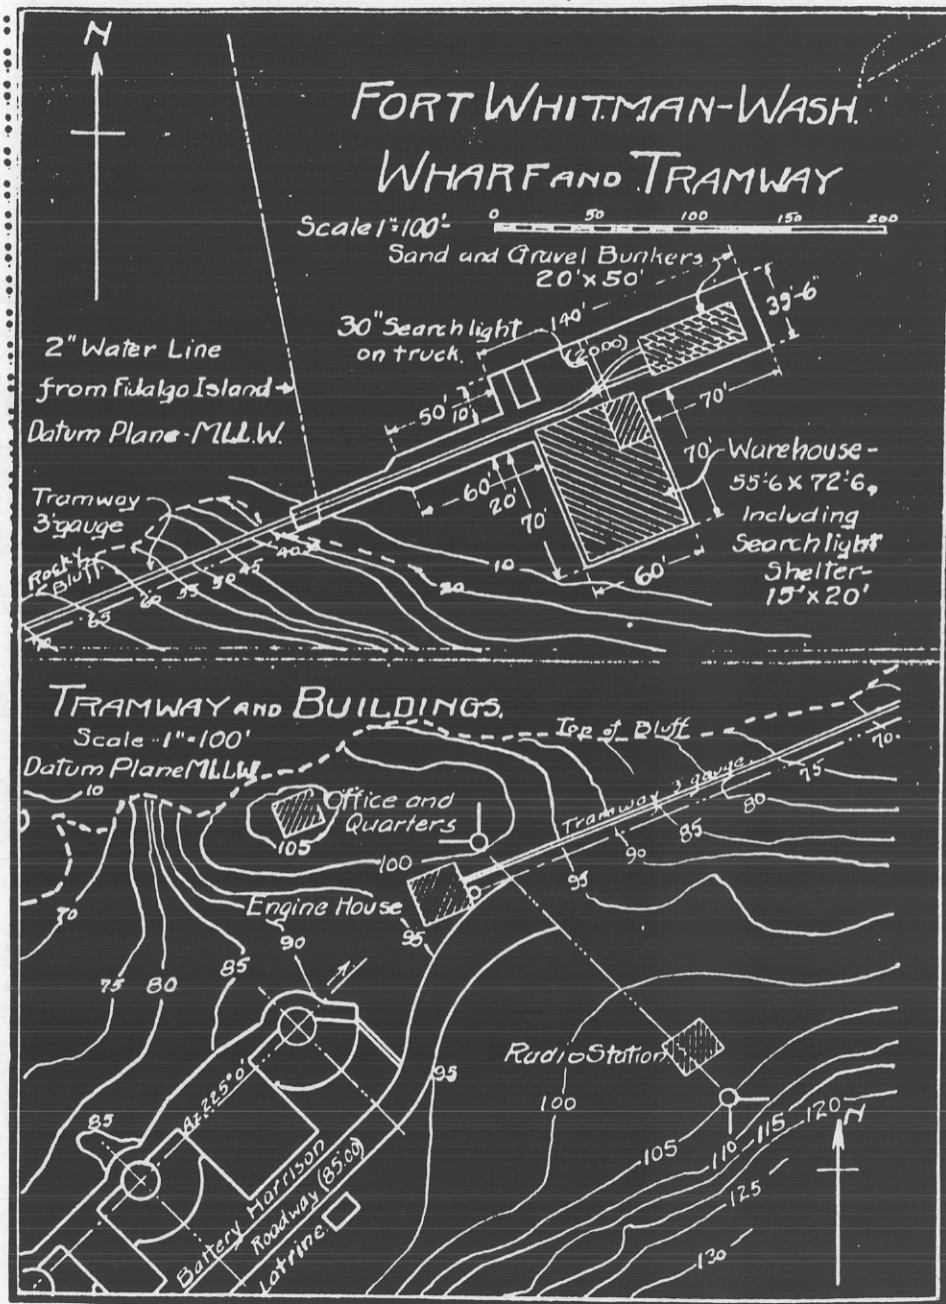 N
FORT WHITMAN-WASH.
WHARF AND TRAMWAY
Scale 1"=100'-
0 50 100 150 200
Sand and Gravel Bunkers
20'x50'
140'
39'-6"
30" Searchlight
on truck.
(20.00)
2" Water Line
from Fidalgo Island
Datum Plane-MLLW.
50'
10'
70'
70'
Warehouse-
55'-6 x 72'-6,
Including
Searchlight
Shelter-
15'x20'
60'
20'
70'
60'
Tramway
3'gauge
Rocky
Bluff
10
20
40
45
50
55
60
65
70
TRAMWAY AND BUILDINGS.
Scale -1"=100'
Datum Plane MLLW.
Top of Bluff
Tramway 3' gauge
70
75
80
85
90
95
10
Office and
Quarters
105
100
Engine House
95
90
85
80
75
70
Radio Station
95
100
105
110
115
120
125
130
N
85
Az. 225°0'
Battery Harrison
Roadway (85.00)
Latrine